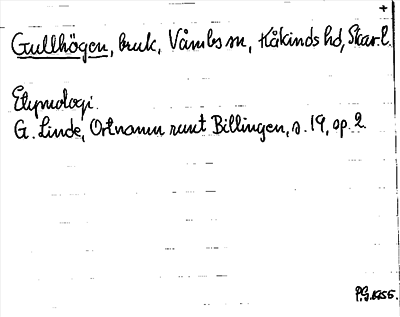 +
Gullhögen, bruk, Våmbs sn, Kåkinds hd, Skar. l.
Etymologi.
G. Linde, Ortnamn runt Billingen, s. 19, sp. 2.
P.G. 1955.